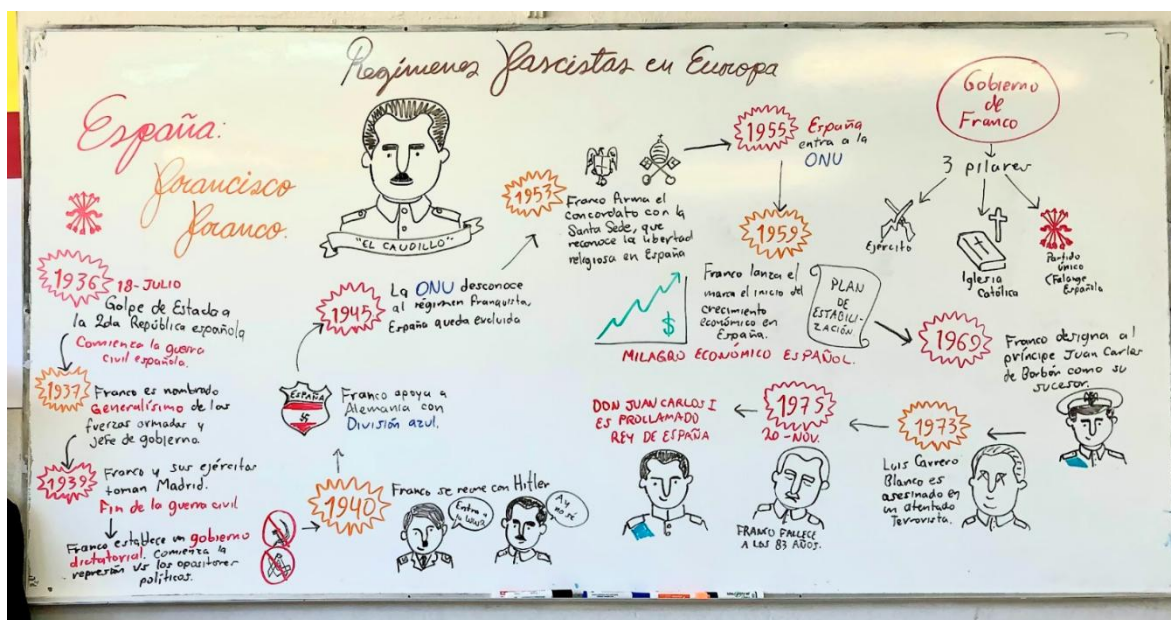 Regímenes Fascistas en Europa
España:
Francisco
Franco.
"EL CAUDILLO"
1936
18-JULIO
Golpe de Estado a
la 2da República española
Comienza la guerra
civil española.
1937
Franco es nombrado
Generalísimo de las
fuerzas armadas y
jefe de gobierno.
1939
Franco y sus ejércitos
toman Madrid.
Fin de la guerra civil
Franco establece un gobierno
dictatorial. Comienza la
represión vs los opositores
políticos.
1940
Franco se reune con Hitler
Entra a
la WW2
Ay
no sé
ESPAÑA
Franco apoya a
Alemania con
División azul.
1945
La ONU desconoce
al régimen franquista,
España queda excluida
1953
Franco firma el
concordato con la
Santa Sede, que
reconoce la libertad
religiosa en España
1955
España
entra a la
ONU
1959
Franco lanza el
marca el inicio del
crecimiento
económico en
España.
PLAN
DE
ESTABILI-
ZACIÓN
$
MILAGRO ECONÓMICO ESPAÑOL.
1969
Franco designa al
príncipe Juan Carlos
de Borbón como su
sucesor.
1973
Luis Carrero
Blanco es
asesinado en
un atentado
Terrorista.
1975
20-NOV.
FRANCO FALLECE
A LOS 83 AÑOS.
DON JUAN CARLOS I
ES PROLLAMADO
REY DE ESPAÑA
Gobierno
de
Franco
3 pilares
Ejército
Iglesia
Católica
Partido
único
(Falange
Española)